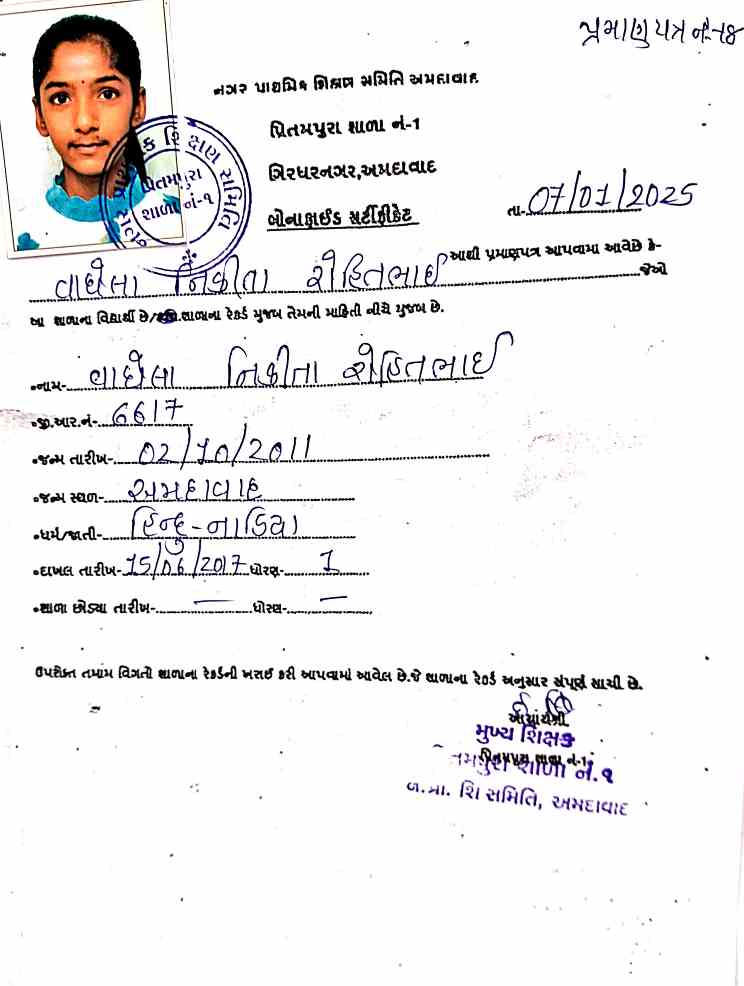 પ્રમાણપત્ર નં-૧૪
નગર પ્રાથમિક શિક્ષણ સમિતિ અમદાવાદ
પ્રિતમપુરા શાળા નં-1
ગિરધરનગર,અમદાવાદ
બોનાફાઈડ સર્ટીફીકેટ
તા-07/01/2025
ક શિક્ષણ સમિતિ
પ્રિતમપુરા
શાળા નં-૧
આથી પ્રમાણપત્ર આપવામા આવેછે કે-
વાઘેલા નિકીતા રોહિતભાઈ જેઓ
આ શાળાના વિદ્યાર્થી છે/ શાળાના રેકર્ડ મુજબ તેમની માહિતી નીચે મુજબ છે.
•નામ- વાઘેલા નિકીતા રોહિતભાઈ
•જી.આર.નં- 6617
•જન્મ તારીખ- 02/10/2011
•જન્મ સ્થળ- અમદાવાદ
•ધર્મ/જાતી- હિન્દુ-નાડિયા
•દાખલ તારીખ-15/06/2017 ધોરણ- 1
•શાળા છોડ્યા તારીખ- — ધોરણ- —
ઉપરોક્ત તમામ વિગતો શાળાના રેકર્ડની ખરાઈ કરી આપવામાં આવેલ છે.જે શાળાના રેકર્ડ અનુસાર સંપૂર્ણ સાચી છે.
આચાર્યશ્રી
મુખ્ય શિક્ષક
પ્રિતમપુરા શાળા નં-1
શાળા નં.૧
પ્રા. શિ સમિતિ, અમદાવાદ